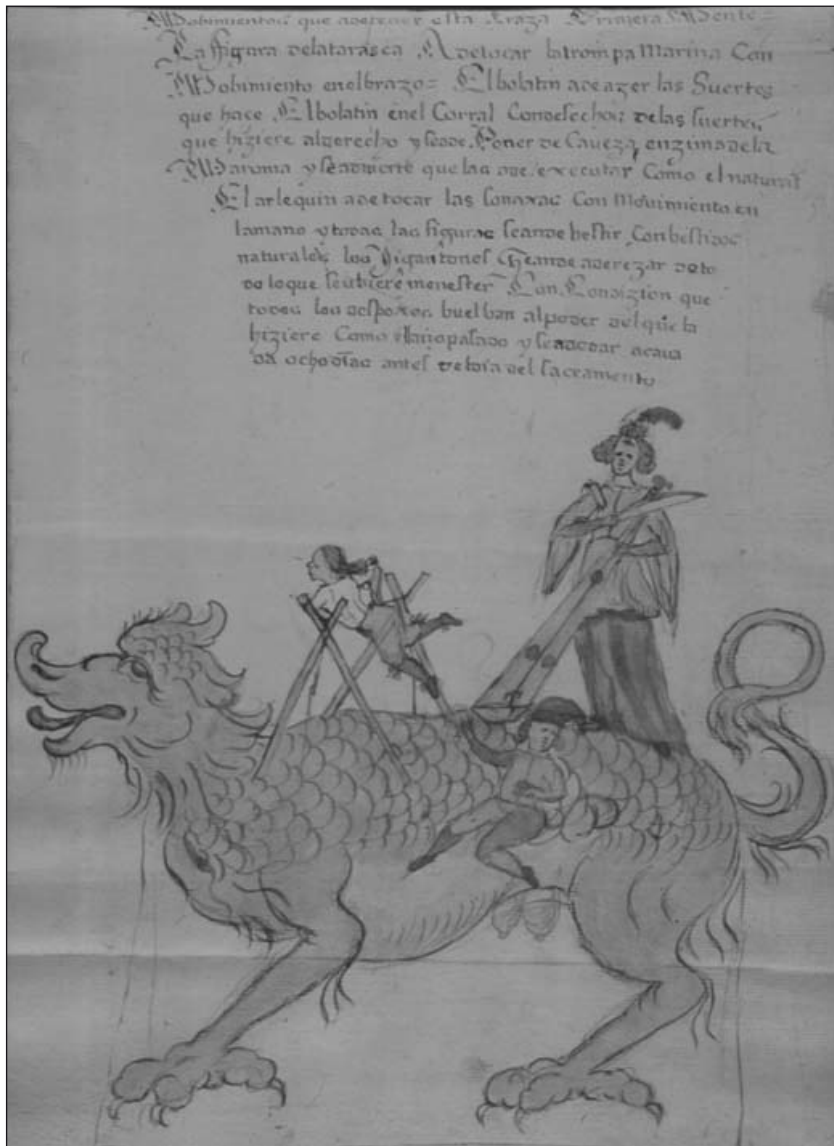 Mobimientos que a de tener esta traza Primera Mente =
La figura de la tarasca A de tocar la trompa Marina Con
Mobimiento en el brazo = El bolatin a de azer las Suertes
que hace El bolatin en el Corral Con desechos de las suertes
que hiziere al derecho y se a de Poner de Caveza enzima de la
Maroma y se advierte que las a de executar Como el natural
El arlequin a de tocar las sonaxas Con Movimiento en
la mano y todas las figuras se an de bestir Con bestidos
naturales los Gigantones se an de aderezar de to
do lo que se ubiere menester Con Condizion que
todos los despoxos buelban al poder del que la
hiziere Como el año pasado y se a de dar acava
da ocho dias antes del dia del sacramento